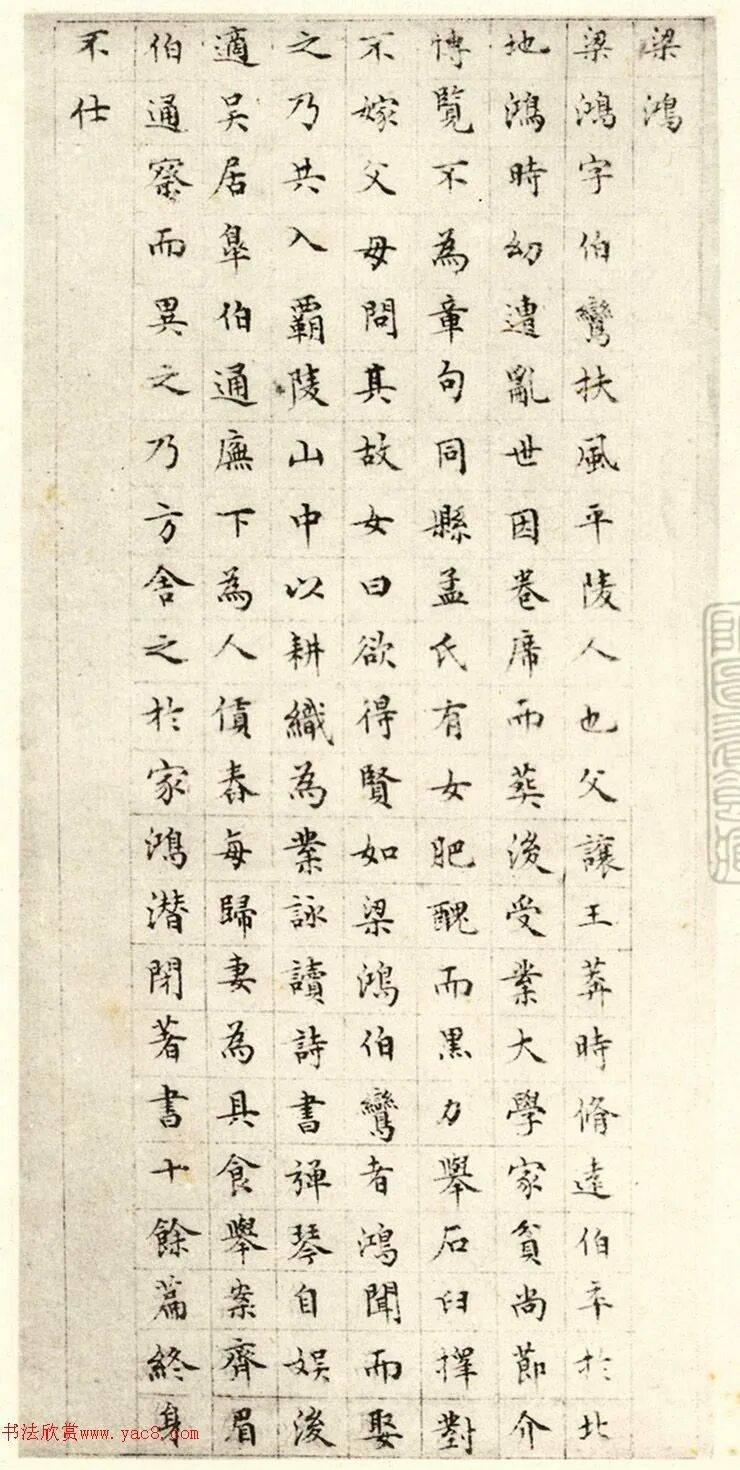 梁鴻
梁鴻字伯鸞扶風平陵人也父讓王莽時脩遠伯卒於北
地鴻時幼遭亂世因卷席而葬後受業大學家貧尚節介
博覽不為章句同縣孟氏有女肥醜而黑力舉石臼擇對
不嫁父母問其故女曰欲得賢如梁鴻伯鸞者鴻聞而娶
之乃共入霸陵山中以耕織為業詠讀詩書彈琴自娛後
適吳居皐伯通廡下為人舂每歸妻為具食舉案齊眉
伯通察而異之乃方舍之於家鴻潛閉著書十餘篇終身
不仕
书法欣赏www.yac8.com